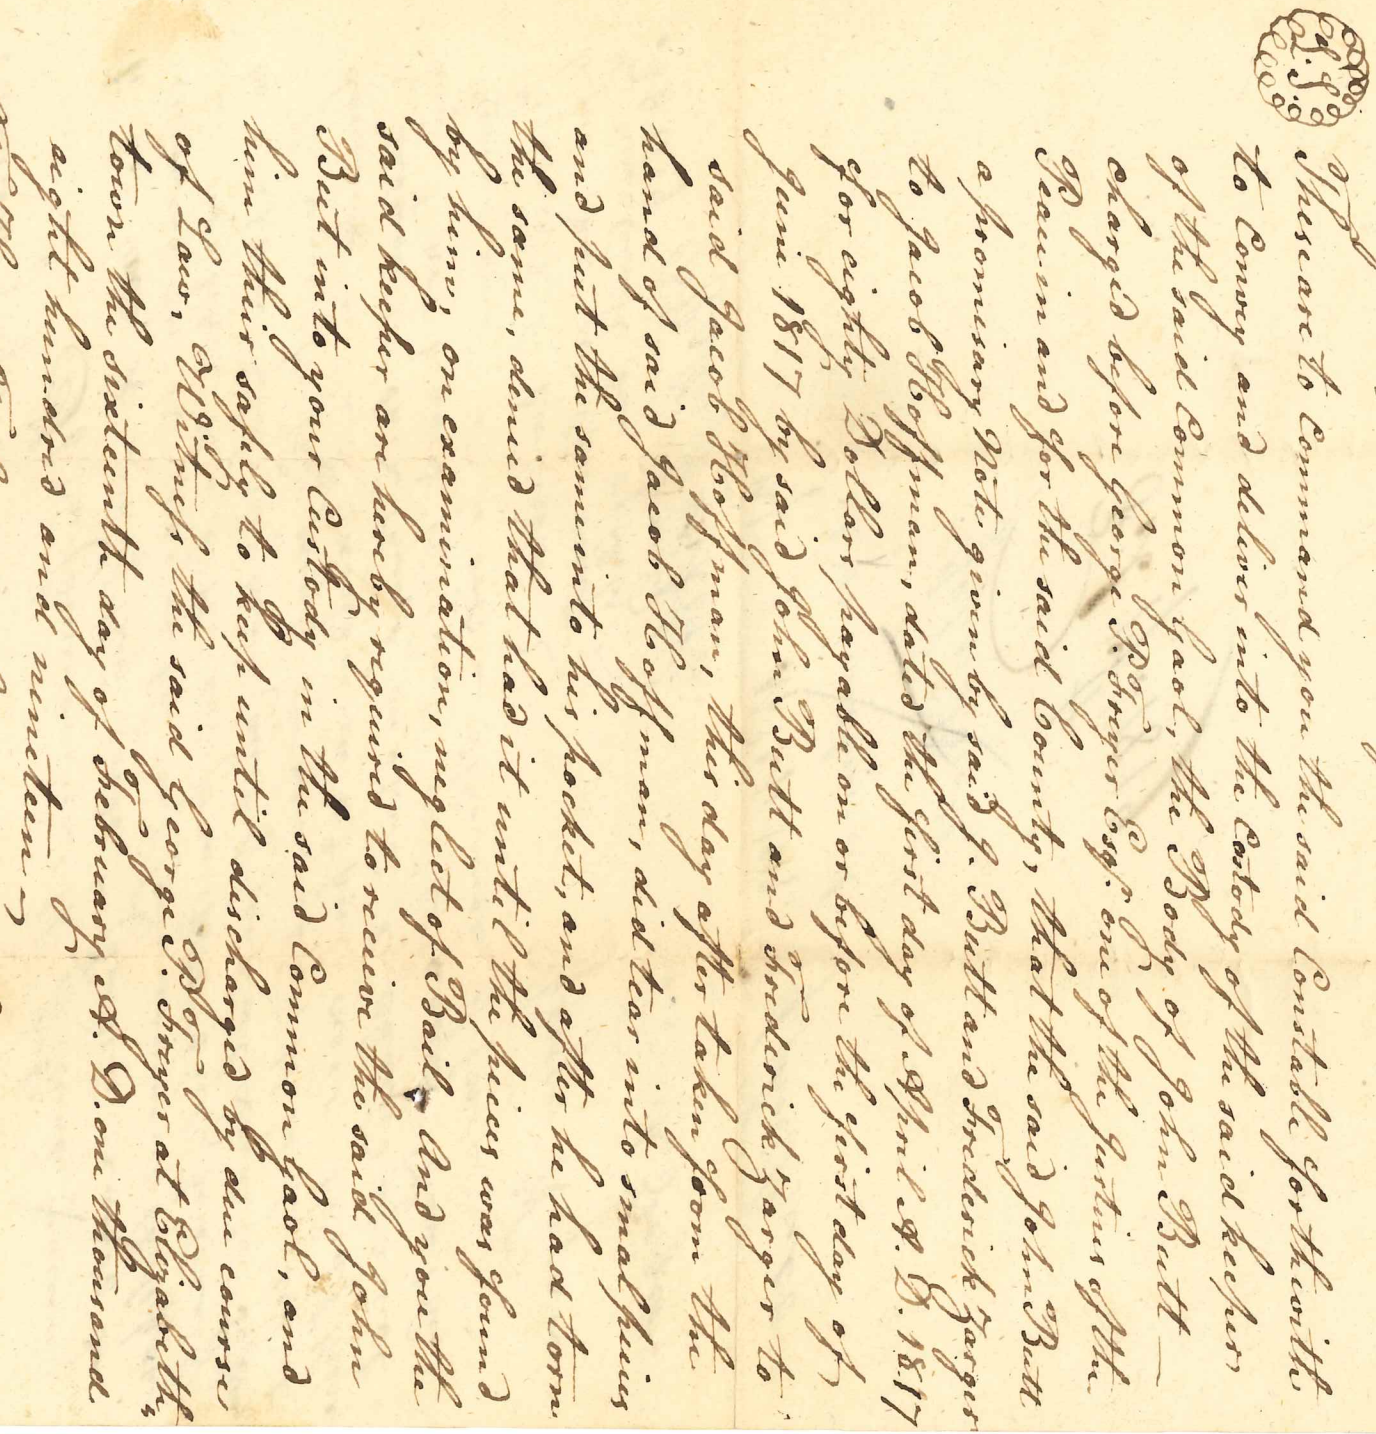 L.S.
These are to Command you the said Constable forthwith
to Convey and deliver into the Costody of the said keeper
of the said Common Gaol, the Body of John Butt —
charged before George P. Fryer Esqr. one of the Justius of the
Peau in and for the said County, that the said John Butt
a promisary Note given by said J. Butt and Frederick Zarger
to Jacob Hoffman, dated the first day of April A. D. 1817
for eighty Dollars payable on or before the first day of
June 1817 by said John Butt and Frederick Zarger to
said Jacob Hoffman, this day after taken from the
hand of said Jacob Hoffman, did tear into smal pieces
and put the same into his pocket, and after he had torn
the same, denied that had it until the pieces was found
by him, on examination, neglect of Bail, And you the
said keeper are hereby required to receive the said John
But into your Custody in the said Common Gaol, and
him their safely to keep until discharged by due course
of Law, Witness the said George P. Fryer at Elizabeth„
town the sixteenth day of February A. D. one thousand
eight hundred and nineteen —